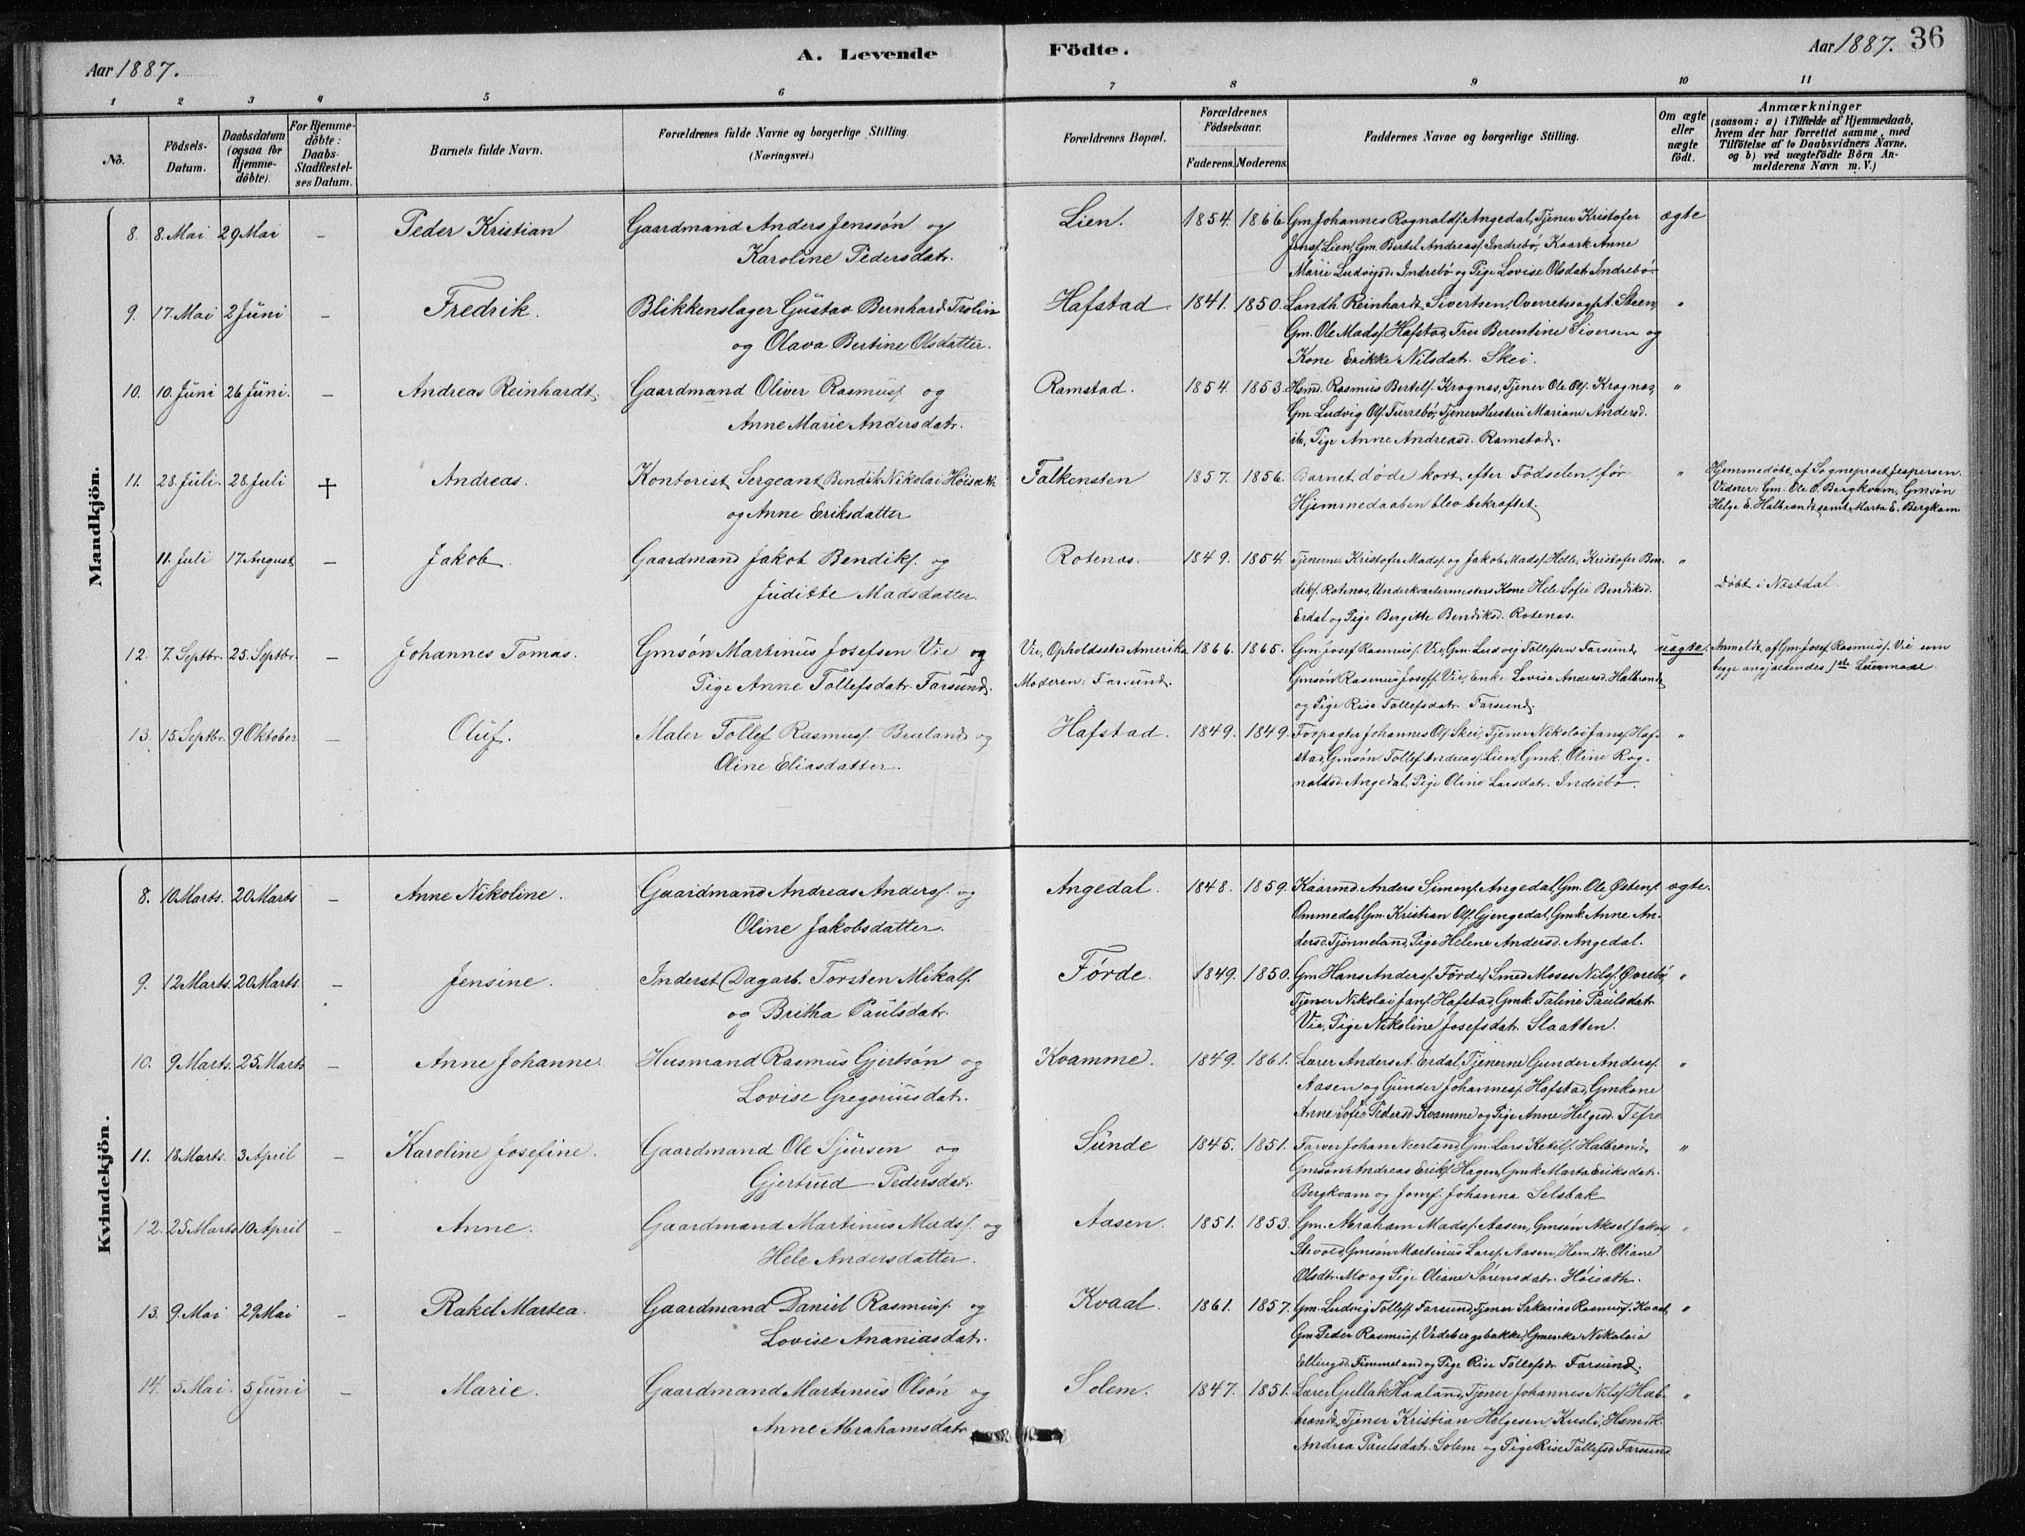 Aar 1887. A. Levende Födte. Aar 1887. 36
1 2 3 4 5 6 7 8 9 10 11
No. Födsels-Datum. Daabsdatum (ogsaa for Hjemmedöbte). For Hjemmedöbte: Daabs-Stadfæstelses Datum. Barnets fulde Navn. Forældrenes fulde Navne og borgerlige Stilling. (Næringsvei.) Forældrenes Bopæl. Forældrenes Födselsaar. Faderens. Moderens. Faddernes Navne og borgerlige Stilling. Om ægte eller uægte födt. Anmærkninger (saasom: a) i Tilfælde af Hjemmedaab, hvem der har forrettet samme, med Tilföielse af to Daabsvidners Navne, og b) ved uægtefödte Börn Anmelderens Navn m. V.)
Mandkjön.
8. 8. Mai 29 Mai – Peder Kristian Gaardmand Anders Jenssön og Lien. 1854. 1866. Gm Johannes Rognaldsf. Angedal, Tjener Kristofer ægte
Jensf. Lien, Gm. Bertel Andreasf. Indrebö, Kaark. Anne
Karoline Pedersdatr. Marie Ludvigsd. Indrebö og Pige Lovise Olsdat. Indrebö
9. 17. Mai 2 Juni – Fredrik. Blikkenslager Gustav Bernhard Trolin Hafstad 1841. 1850. Landh. Reinhardt Sivertsen, Overretssagf. A. Steen, "
og Olava Bertine Olsdatter. Gm. Ole Madsf. Hafstad, Fru Berentine Siversen og
Kone Erikke Nilsdat. Skei.
10. 10. Juni 26 Juni. – Andreas Reinhardt. Gaardmand Oliver Rasmusf. og Ramstad. 1854. 1853. Hsmd. Rasmus Bertelf. Krognæs, Tjener Ole Olf. Krognæs, "
Anne Marie Andersdatr. Gm. Ludvig Olf. Furrebö, Tjeners Hustru Mariane Andersd.
ib, Pige Anne Andreasd. Ramstad.
11. 28 Juli. 28 Juli † Andreas. Kontorist Sergeant Bendik Nikolai Höisæth Falkensten 1857. 1856. Barnet döde kort efter Födselen, för " Hjemmedöbt af Sogneprest Jespersen.
og Anne Eriksdatter Hjemmedaaben blev bekræftet. Vidner: Gm. Ole O. Bergkvam, Gmsön
Helge E. Halbrendt samt Marta E. Bergkvam
11. Juli 17 August – Jakob Gaardmand Jakob Bendiksf. og Rotenæs. 1849. 1854. Tjenerne Kristofer Madsf. og Jakob Madsf. Helle, Kristofer Ben- "
Juditte Madsdatter diksf. Rotenæs, Underkvartermesters Kone Hele Sofie Bendiksd. Döbt i Nöstdal.
Erdal og Pige Bergitte Bendiksd. Rotenæs.
12. 7. Septbr. 25. Septbr. – Johannes Tomas. Gmsön Martinus Josefsen Vie og Vie, Opholdssted Amerika 1866. 1865. Gm. Josef Rasmusf. Vie, Gm. Ludvig Tollefsen Farsund, uægte. Anmeldt af Gm. Josef Rasmusf. Vie som
Pige Anne Tollefsdatr. Farsund. Moderen: Farsund. Gmsön Rasmus Joseff. Vie, Enke Lovise Andersd. Halbrendt
og Pige Rise Tollefsdatr. Farsund.
13. 15. Septbr. 9 Oktober – Oluf. Maler Tollef Rasmusf. Bruland og Hafstad. 1849. 1849. Forpagter Johannes Olf. Skei, Tjener Nikolai Jansf. Haf- "
Oline Eliasdatter. stad, Gmsön Tollef Andreasf. Lien, Gmk. Oline Rog-
naldsd. Angedal, Pige Oline Larsdatr. Indrebö.
Kvindekjön.
8. 10 Marts. 20 Marts – Anne Nikoline. Gaardmand Andreas Andersf. og Angedal. 1848. 1859. Kaarmd. Anders Simonsf. Angedal, Gm. Ole Östensf. ægte.
Oline Jakobsdatter. Ommedal, Gm. Kristian Olf. Gjengedal, Gmk. Anne An-
dersd. Tjönneland, Pige Helene Andersd. Angedal.
9. 12 Marts. 20 Marts. – Jensine. Inderst (Dagarb. Torsten Mikalsf. Förde. 1849. 1850. Gm Hans Andersf. Förde, Smed Moses Nilsf. "
og Britha Paulsdatr. Tjener Nikolai Jansf. Hafstad, Gmk. Taline Paulsdatr.
Vie, Pige Nikoline Josefsdatr. Slaatten.
10. 9 Marts. 25 Marts – Anne Johanne Husmand Rasmus Gjertsön og Kvamme. 1849. 1861. Lærer Anders A. Erdal, Tjenerne Gunder Andersf. "
Lovise Gregoriusdatr. Aasen og Gunder Johannesf. Hafstad, Gmkone
Anne Sofie Pedersd. Kvamme og Pige Anne Helged. Tefre
11. 18 Marts. 3 April – Karoline Josefine. Gaardmand Ole Sjursen og Sunde 1845. 1851. Farver Johan Neerland, Gm. Lars Ketilsf. Halbrend, "
Gjertrud Pedersdatr. Gmsön Andreas Eriksf. Hagen, Gmk. Marta Eriksdatr.
Bergkvam og Jomf. Johanna Selsbak
12. 25 Marts 10 April – Anne. Gaardmand Martinus Madsf. og Aasen. 1851. 1853. Gm. Abraham Madsf. Aasen, Gmsön Aksel Jakobsf. "
Hele Andersdatter. Gmsön Martinus Larsf. Aasen, Hsmdk. Oliane
Olsdtr. Mo og Pige Oliane Sörensdatr. Höisæth.
13. 9. Mai 29 Mai – Rakel Martea. Gaardmand Daniel Rasmusf. og Kvaal. 1861. 1857. Gm. Ludvig Tolleff. Farsund, Tjener Sakarias Rasmusf. Kvaal, "
Lovise Ananiasdatr. Gm. Peder Rasmusf. Vedebergsbakke, Gmenke Nikolaia
Ellingsd. Fimmeland og Pige Rise Tollefsdr. Farsund.
14. 5 Mai. 5 Juni – Marie. Gaardmand Martinus Olsön og Solem. 1847. 1851. Lærer Gullak Haaland, Tjener Johannes Nilsf. Hal- "
Anne Abrahamsdatr. brendt, Tjener Kristian Helgesen Kusli, Hsmk.
Andrea Paulsdatr. Solem og Pige Rise Tollefsd. Farsund.